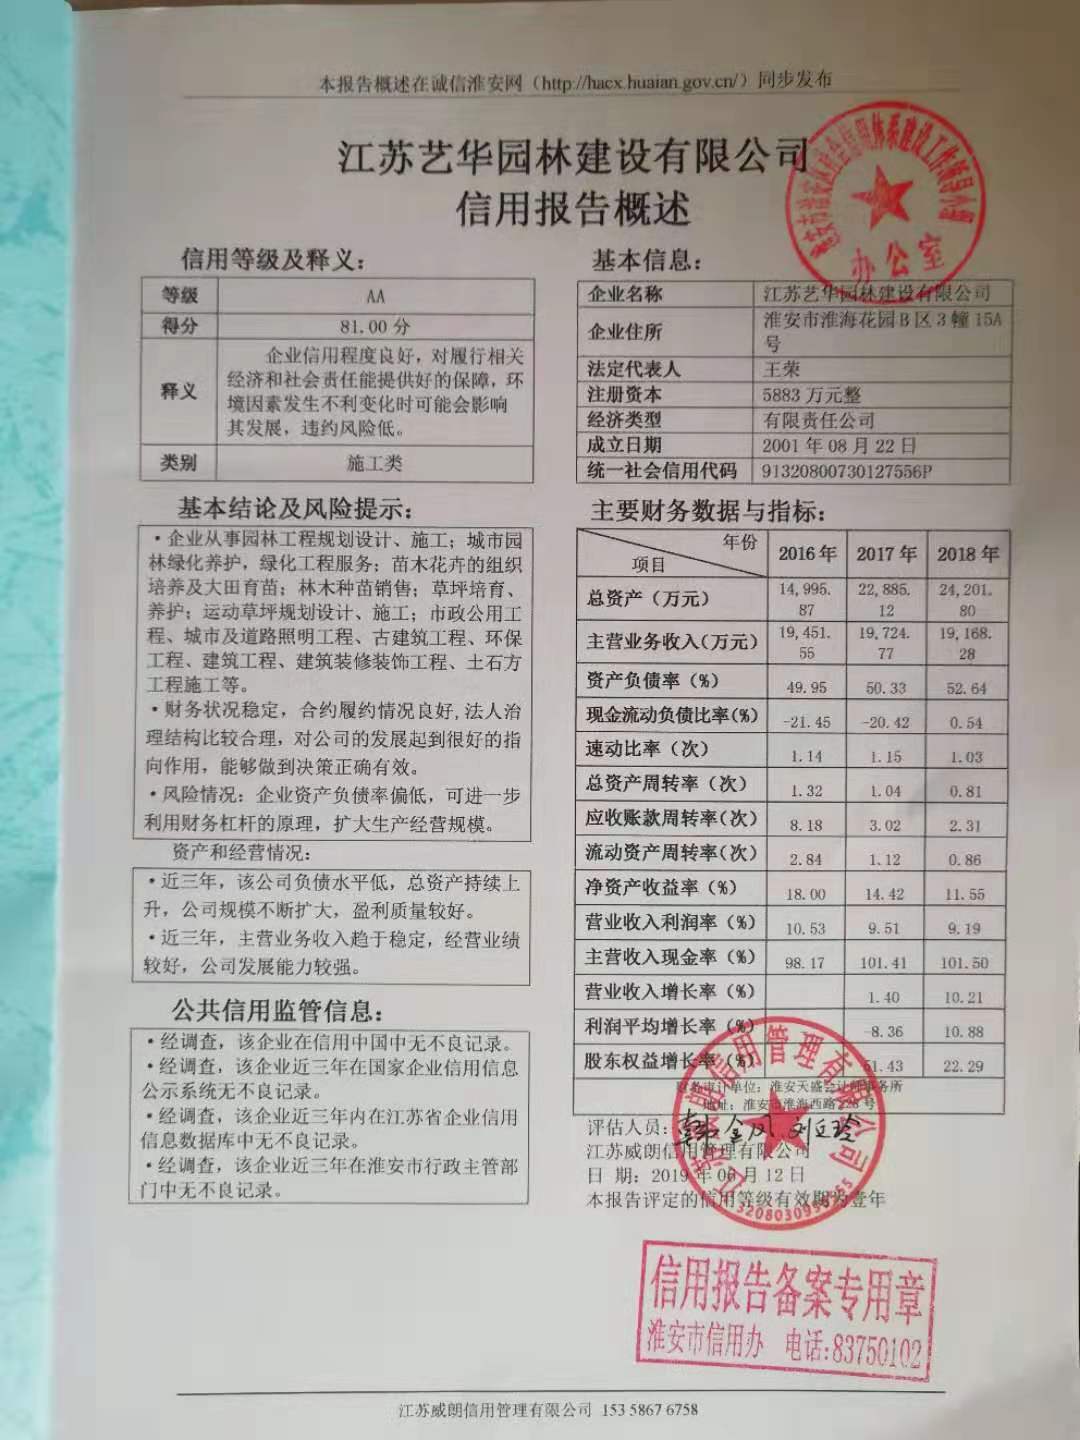 本报告概述在诚信淮安网（http://hacx.huaian.gov.cn/）同步发布
江苏艺华园林建设有限公司
信用报告概述
信用等级及释义：
等级 AA
得分 81.00 分
释义
企业信用程度良好，对履行相关
经济和社会责任能提供好的保障，环
境因素发生不利变化时可能会影响
其发展，违约风险低。
类别 施工类
基本结论及风险提示：
·企业从事园林工程规划设计、施工；城市园
林绿化养护，绿化工程服务；苗木花卉的组织
培养及大田育苗；林木种苗销售；草坪培育、
养护；运动草坪规划设计、施工；市政公用工
程、城市及道路照明工程、古建筑工程、环保
工程、建筑工程、建筑装修装饰工程、土石方
工程施工等。
·财务状况稳定，合约履约情况良好,法人治
理结构比较合理，对公司的发展起到很好的指
向作用，能够做到决策正确有效。
·风险情况：企业资产负债率偏低，可进一步
利用财务杠杆的原理，扩大生产经营规模。
资产和经营情况：
·近三年，该公司负债水平低，总资产持续上
升，公司规模不断扩大，盈利质量较好。
·近三年，主营业务收入趋于稳定，经营业绩
较好，公司发展能力较强。
公共信用监管信息：
·经调查，该企业在信用中国中无不良记录。
·经调查，该企业近三年在国家企业信用信息
公示系统无不良记录。
·经调查，该企业近三年内在江苏省企业信用
信息数据库中无不良记录。
·经调查，该企业近三年在淮安市行政主管部
门中无不良记录。
基本信息：
企业名称 江苏艺华园林建设有限公司
企业住所 淮安市淮海花园 B 区 3 幢 15A
号
法定代表人 王荣
注册资本 5883 万元整
经济类型 有限责任公司
成立日期 2001 年 08 月 22 日
统一社会信用代码 91320800730127556P
主要财务数据与指标：
年份
项目 2016 年 2017 年 2018 年
总资产（万元） 14,995.87 22,885.12 24,201.80
主营业务收入(万元) 19,451.55 19,724.77 19,168.28
资产负债率（%） 49.95 50.33 52.64
现金流动负债比率(%) -21.45 -20.42 0.54
速动比率（次） 1.14 1.15 1.03
总资产周转率（次） 1.32 1.04 0.81
应收账款周转率(次) 8.18 3.02 2.31
流动资产周转率(次) 2.84 1.12 0.86
净资产收益率（%） 18.00 14.42 11.55
营业收入利润率（%） 10.53 9.51 9.19
主营收入现金率（%） 98.17 101.41 101.50
营业收入增长率（%） 1.40 10.21
利润平均增长率（%） -8.36 10.88
股东权益增长率（%） 51.43 22.29
财务审计单位：淮安天盛会计师事务所
地址：淮安市淮海西路228号
评估人员：韩金凤 刘
江苏威朗信用管理有限公司
日 期：2019 年 06 月 12 日
本报告评定的信用等级有效期为壹年
办公室
信用报告备案专用章
淮安市信用办 电话:83750102
江苏威朗信用管理有限公司 153 5867 6758